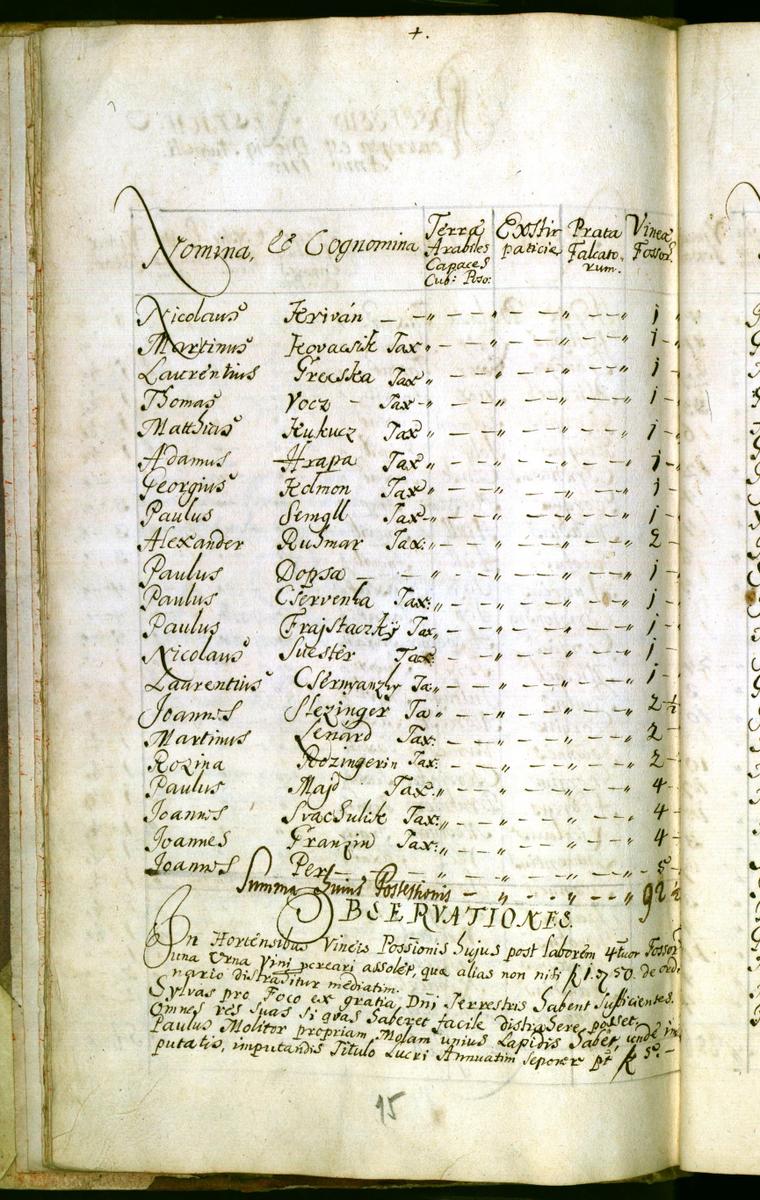 +.
Nomina, & Cognomina Terræ Arabiles Capaces Cub: Poso: Exstirpaticiæ Prata Falcatorum. Vineæ Fossor:
Nicolaus Krivàn — „ — — „ — — „ — — „ 1 „
Martinus Kovacsik Tax „ — — „ — — „ — — „ 1 -
Laurentius Grecska Tax „ — — „ — — „ — — „ 1 -
Thomas Vocz - Tax - „ — — „ — — „ — — „ 1 -
Matthias Kukucz Tax „ — — „ — — „ — — „ 1 -
Adamus Hrapa Tax „ — — „ — — „ — — „ 1 -
Georgius Kolmon Tax „ — — „ — — „ — — „ 1 -
Paulus Semgll Tax „ — — „ — — „ — — „ 1 -
Alexander Rusmar Tax: „ — — „ — — „ — — „ 2 -
Paulus Dopsa — - — „ — — „ — — „ — — „ 1 -
Paulus Cservenka Tax: „ — — „ — — „ — — „ 1 -
Paulus Frajstaczky Tax „ — — „ — — „ — — „ 1 -
Nicolaus Suester Tax „ — — „ — — „ — — „ 1 -
Laurentius Csernyanzky Ta: „ — — „ — — „ — — „ 1 -
Joannes Slezinger Ta „ — — „ — — „ — — „ 2 ½
Martinus Lenárd Tax: „ — — „ — — „ — — „ 2 -
Rozina Rözingerin Tax: — — „ — — „ — — „ 2 -
Paulus Majd Tax: „ — — „ — — „ — — „ 4 -
Joannes Svachulik Tax: „ — — „ — — „ — — „ 4 -
Joannes Franzin Tax: „ — — „ — — „ — — „ 4 -
Joannes Perl — — — „ — — „ — — „ 5 -
Summa Hujus Possessionis — „ — — „ — — „ 92 ½
OBSERVATIONES.
In Hortensibus Vineis Possionis hujus post laborem 4tuor Fossor
una Urna Vini pcreari assolet, quæ alias non nisi f 1. 37. 50. de ordi
nario distrahitur mediatim.
Sylvas pro Foco ex gratia Dni Terrestris habent Sufficientes.
Omnes res suas si quas haberet facile distrahere posset,
Paulus Molitor propriam Molam unius Lapidis habet, unde im
putatis, imputandis Titulo Lucri Annuatim seponere pt f 5. —
15